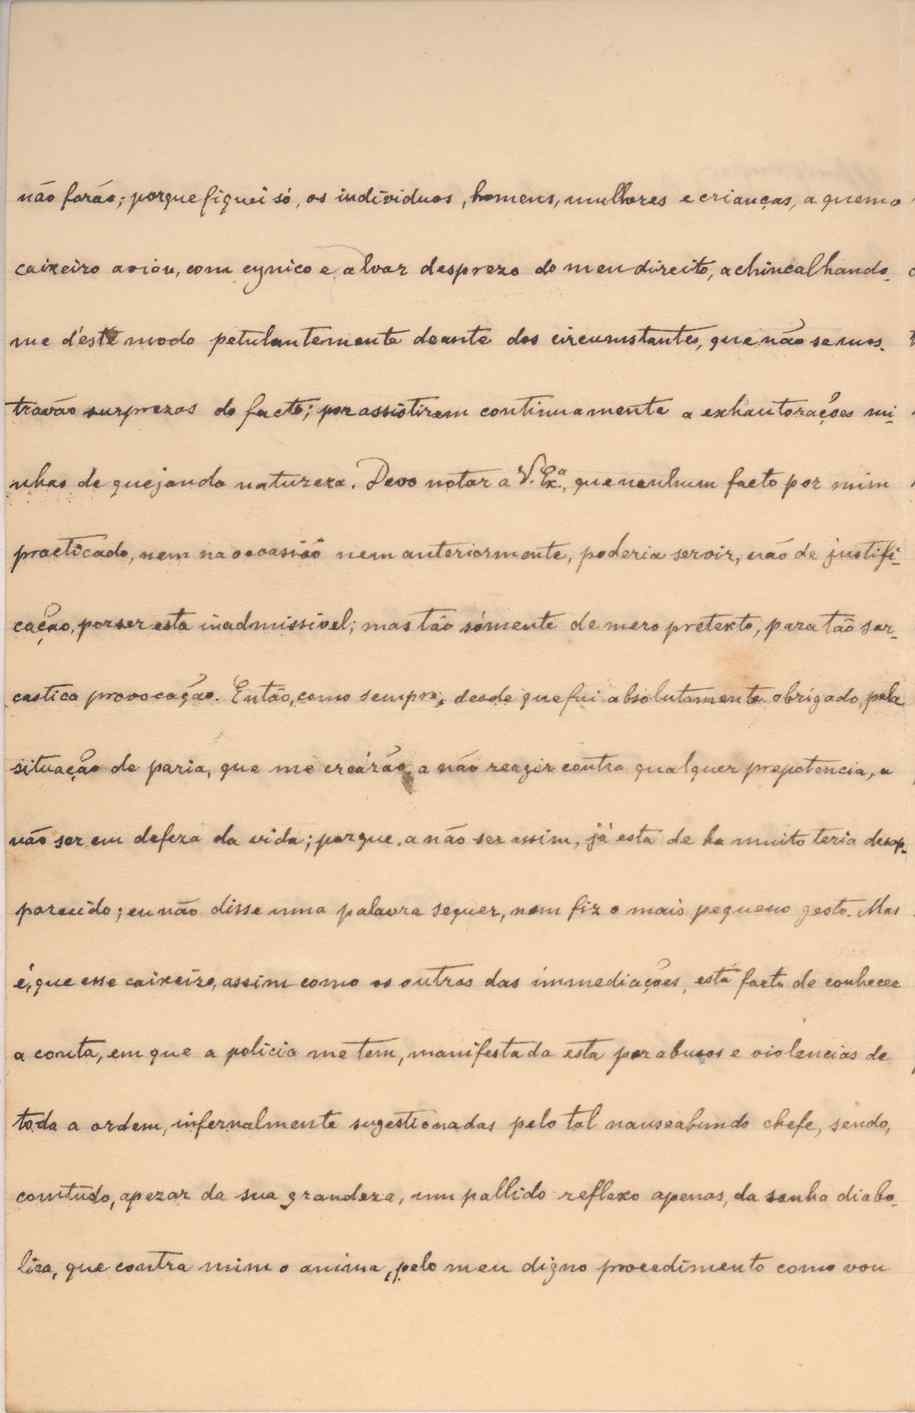 não farão; porque fiquei só, os individuos, homens, mulheres e crianças, a quem o
caixeiro aviou, com cynico e alvar desprezo do meu direito, achincalhando-
me d'este modo petulantemente deante dos circumstantes, que não se mos-
travão surprezos do facto; por assistirem continuamente a exhautorações mi-
nhas de quejanda natureza. Devo notar a V. Exª, que nenhum facto por mim
practicado, nem na occasião nem anteriormente, poderia servir, não de justifi-
cação, por ser esta inadmissivel; mas tão sómente de mero pretexto, para tão sar-
castica provocação. Então, como sempre, desde que fui absolutamente obrigado, pela
situação de paria, que me creárão, a não reagir contra qualquer prepotencia, a
não ser em defeza da vida; porque, a não ser assim, já esta de ha muito teria desap-
parecido; eu não disse uma palavra sequer, nem fiz o mais pequeno gesto. Mas
é, que esse caixeiro, assim como os outros das immediações, está farto de conhecer
a conta, em que a policia me tem, manifestada esta por abusos e violencias de
toda a ordem, infernalmente sugestionadas pelo tal nauseabundo chefe, sendo,
comtudo, apezar da sua grandeza, um pallido reflexo apenas, da sanha diabo-
lica, que contra mim o anima, pelo meu digno procedimento como vou